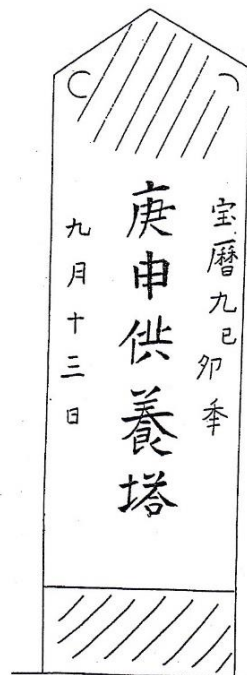 宝暦九己卯年
庚申供養塔
九月十三日